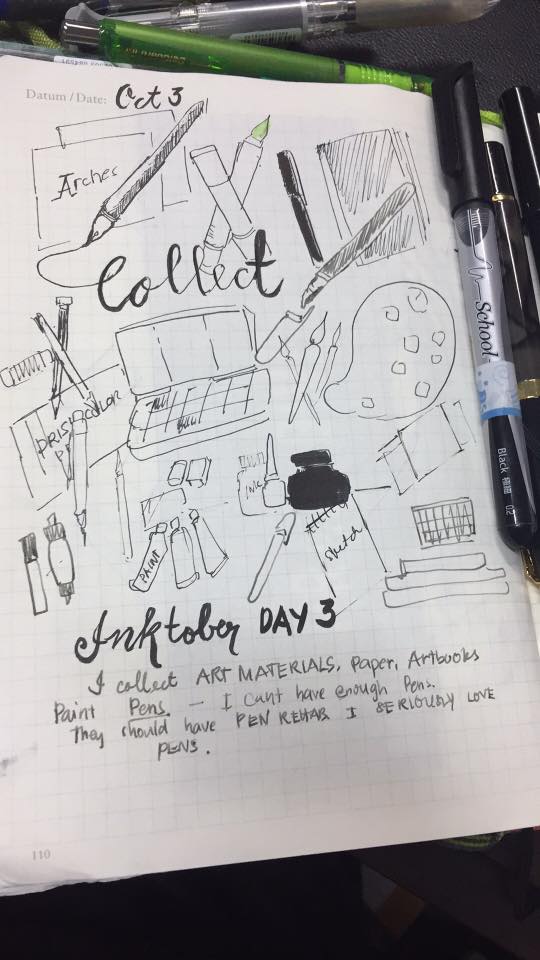 Datum / Date: Oct 3
Arches
Collect
School
PRISMACOLOR
INK
PAINT
sketch
Black
02
Inktober DAY 3
I collect ART MATERIALS, Paper, Artbooks
Paint Pens - I cant have enough Pens.
They should have PEN REHAB I SERIOUSLY LOVE
PENS.
110